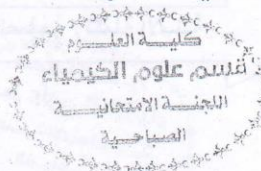 كلية العلوم
قسم علوم الكيمياء
اللجنة الامتحانية
الصباحية